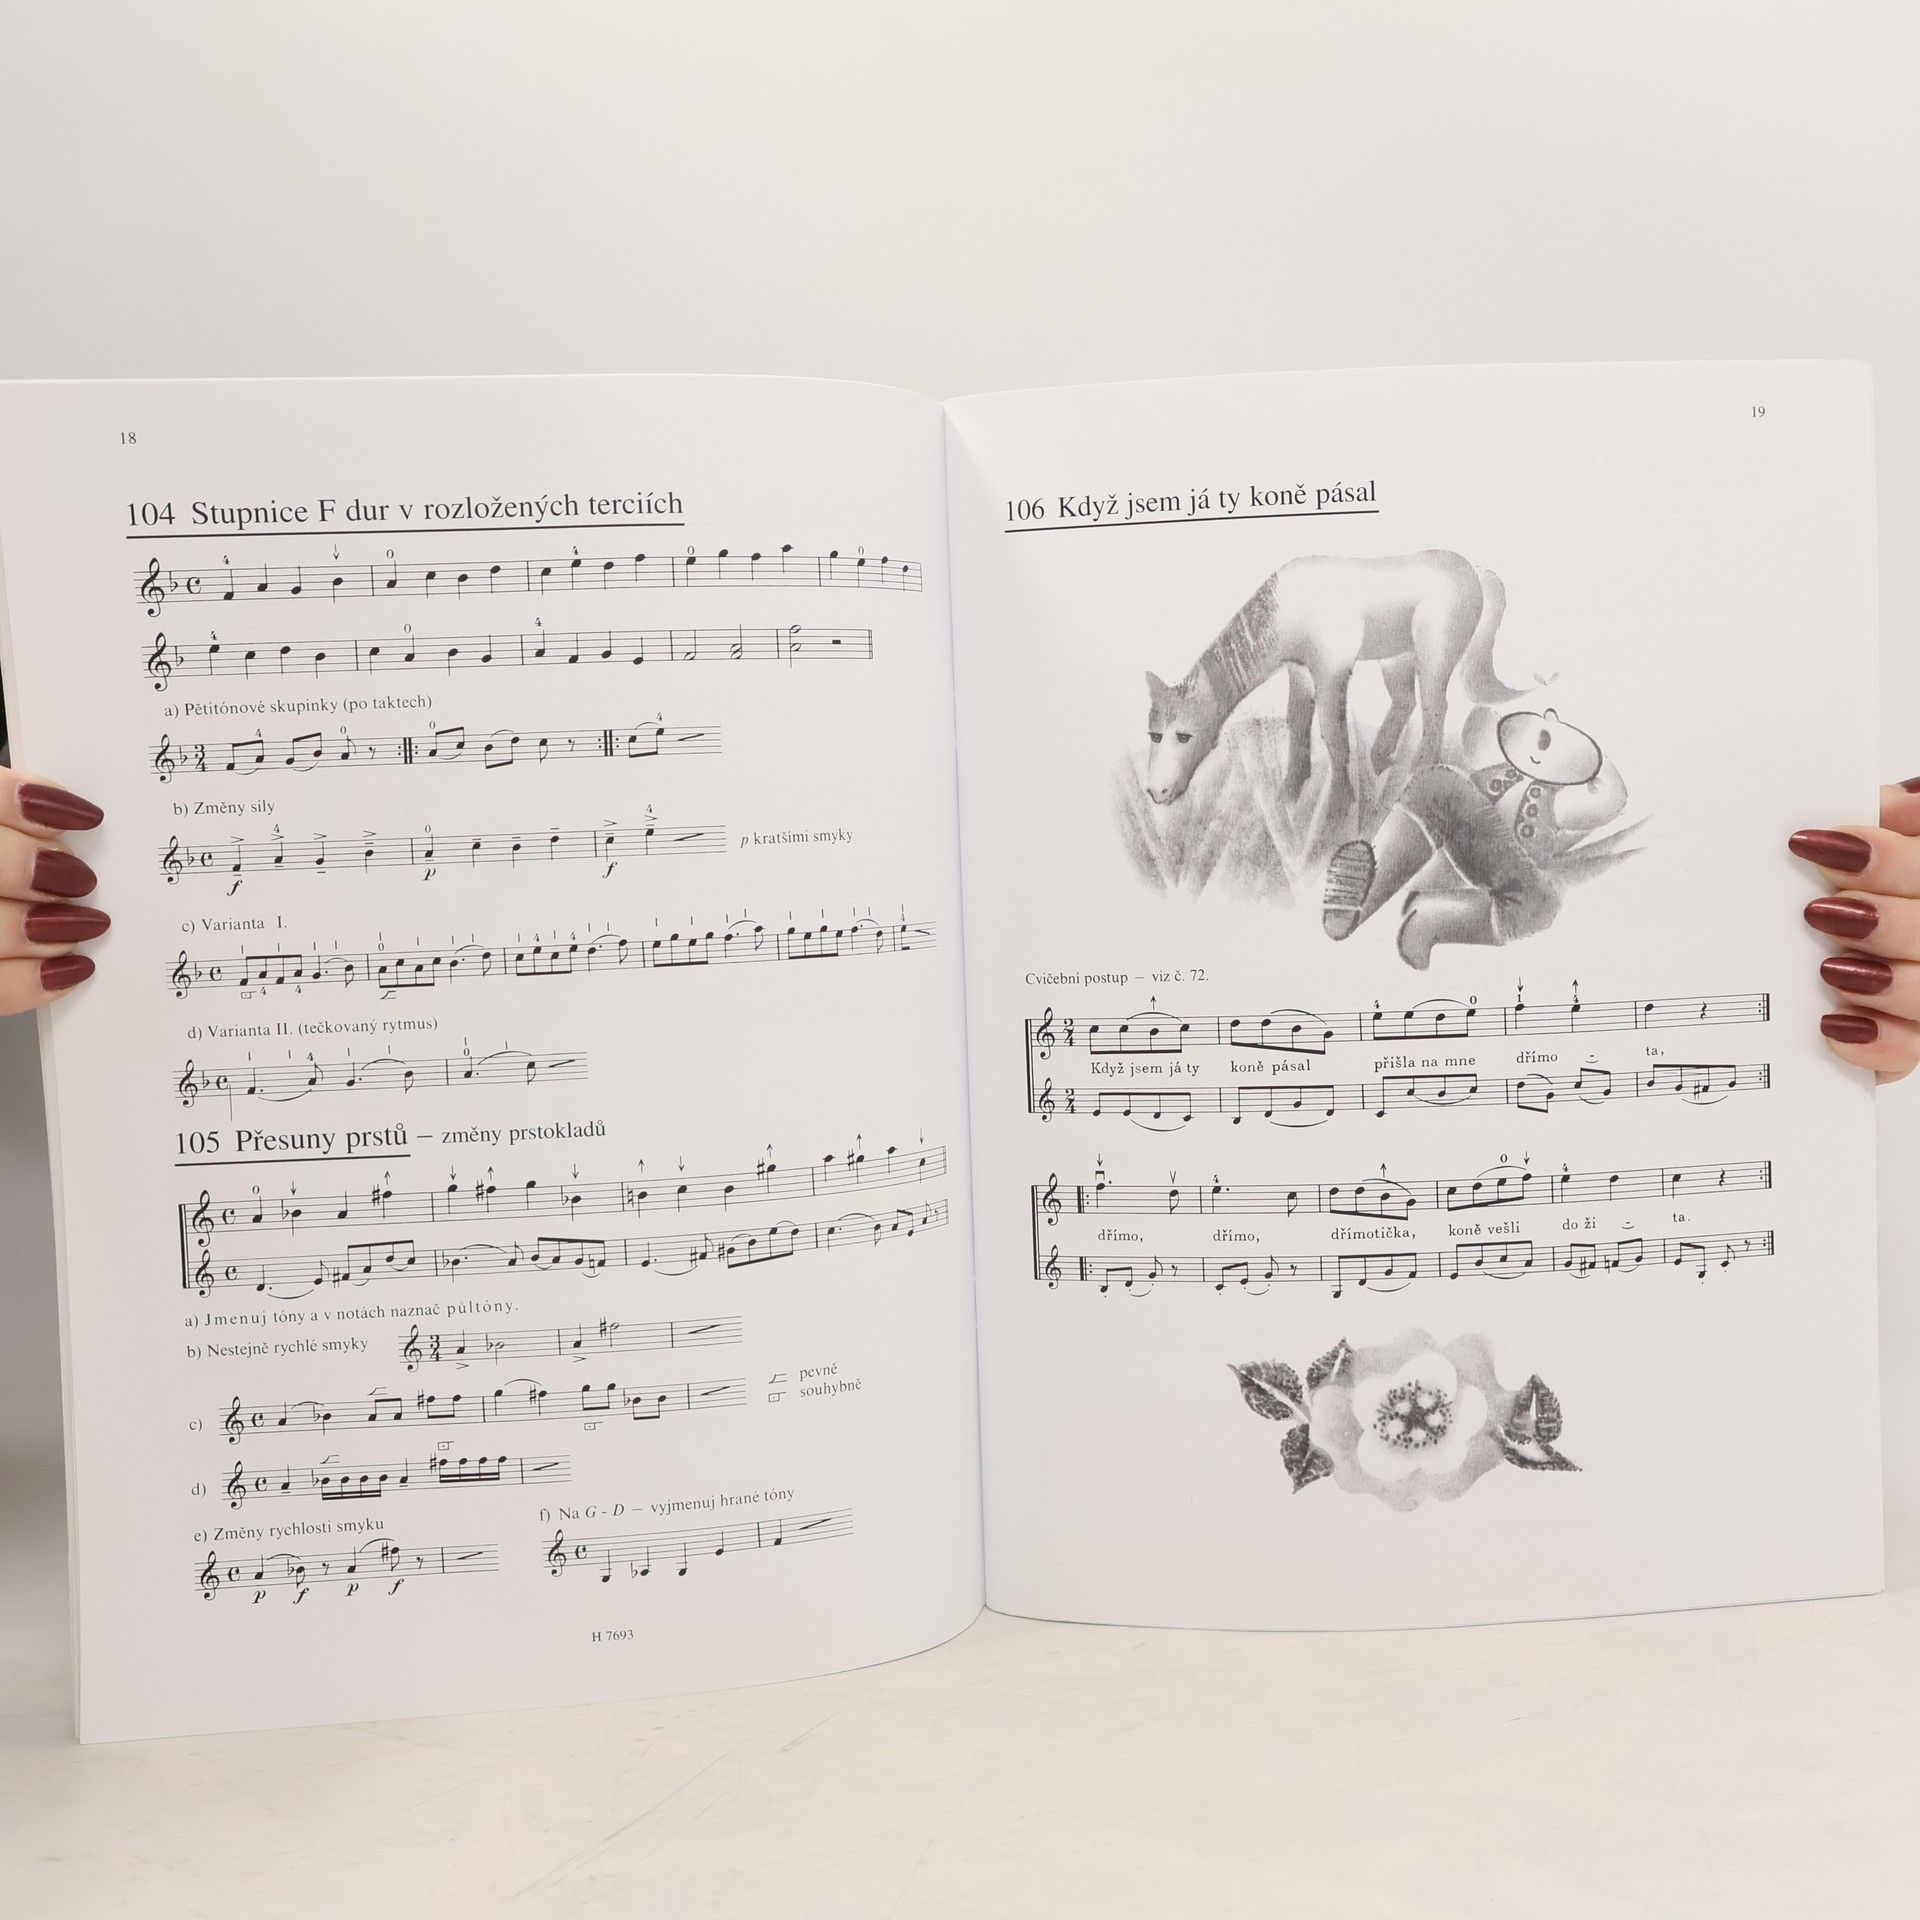 18
104 Stupnice F dur v rozložených terciích
a) Pětitónové skupinky (po taktech)
b) Změny síly
p kratšími smyky
f p f
c) Varianta I.
d) Varianta II. (tečkovaný rytmus)
105 Přesuny prstů – změny prstokladů
a) Jmenuj tóny a v notách naznač půltóny.
b) Nestejně rychlé smyky
c)
pevně
souhybně
d)
e) Změny rychlosti smyku
p f p f
f) Na G - D – vyjmenuj hrané tóny
H 7693
19
106 Když jsem já ty koně pásal
Cvičební postup – viz č. 72.
Když jsem já ty koně pásal přišla na mne dřímo - ta,
dřímo, dřímo, dřímotička, koně vešli do ži - ta.